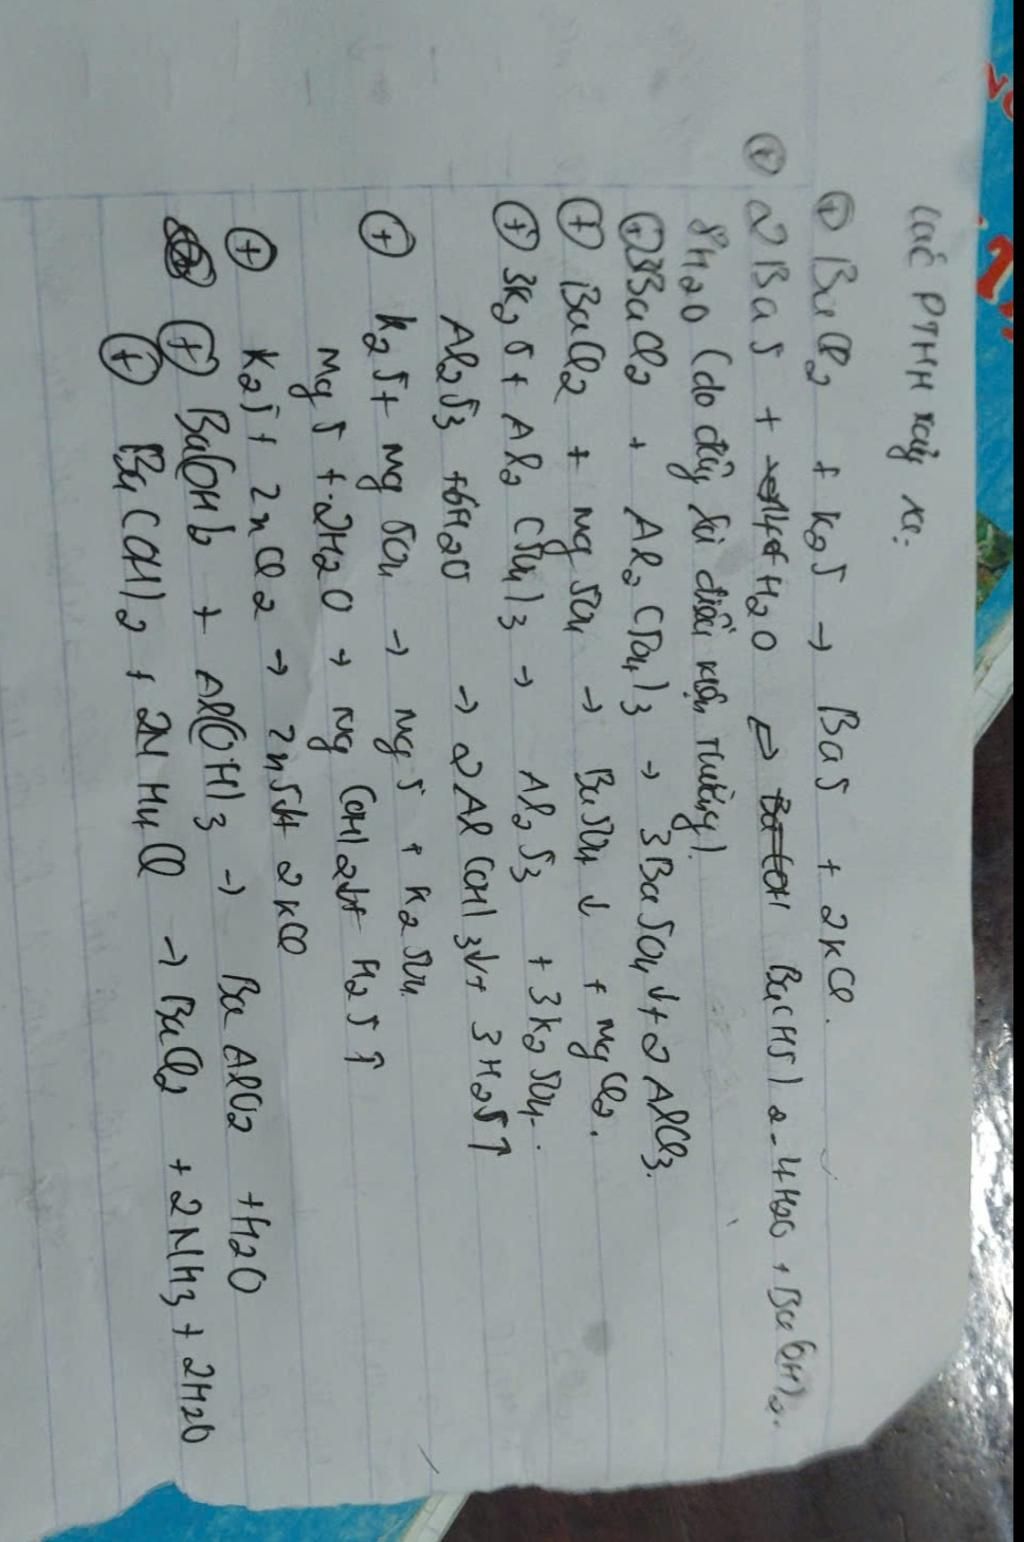 Các PTHH xảy ra:
(+) BaCl2 + K2S → BaS + 2KCl.
(+) 2BaS + H2O ⇒ Ba(HS)2.4H2O + Ba(OH)2.
8H2O (do đây là điều kiện thường).
(+) 3BaCl2 + Al2(SO4)3 → 3BaSO4↓ + 2AlCl3.
(+) BaCl2 + MgSO4 → BaSO4↓ + MgCl2.
(+) 3K2S + Al2(SO4)3 → Al2S3 + 3K2SO4.
Al2S3 + 6H2O → 2Al(OH)3↓ + 3H2S↑
(+) K2S + MgSO4 → MgS + K2SO4.
MgS + 2H2O → Mg(OH)2↓ + H2S↑
(+) K2S + ZnCl2 → ZnS↓ + 2KCl
(+) Ba(OH)2 + Al(OH)3 → BaAlO2 + H2O
(+) Ba(OH)2 + 2NH4Cl → BaCl2 + 2NH3 + 2H2O